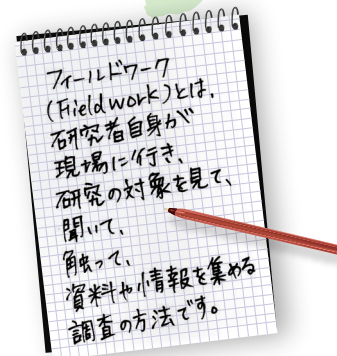 フィールドワーク
(Fieldwork)とは、
研究者自身が
現場に行き、
研究の対象を見て、
聞いて、
触って、
資料や情報を集める
調査の方法です。